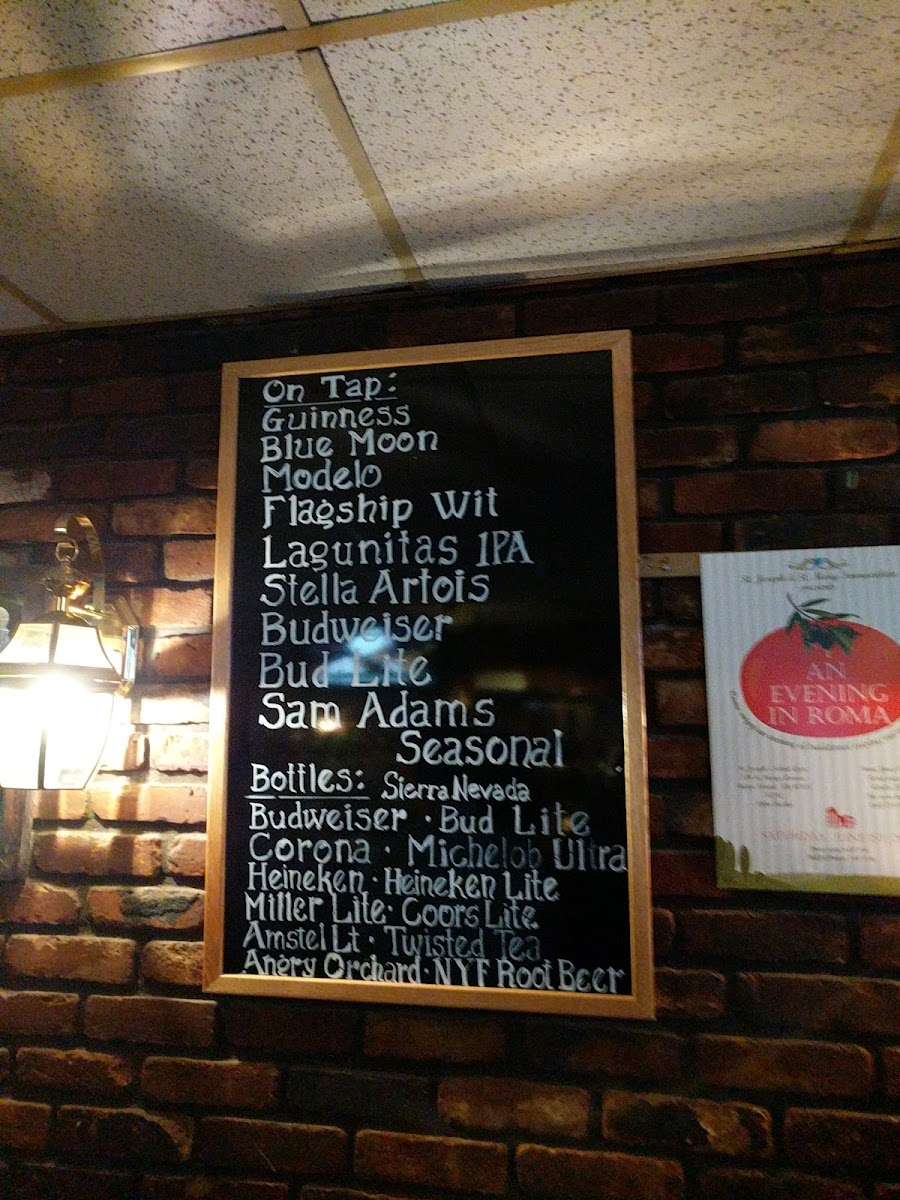 On Tap:
Guinness
Blue Moon
Modelo
Flagship Wit
Lagunitas IPA
Stella Artois
Budweiser
Bud Lite
Sam Adams
Seasonal
Bottles: Sierra Nevada
Budweiser · Bud Lite
Corona · Michelob Ultra
Heineken · Heineken Lite
Miller Lite · Coors Lite
Amstel Lt · Twisted Tea
Angry Orchard · NYF Root Beer
AN
EVENING
IN ROMA